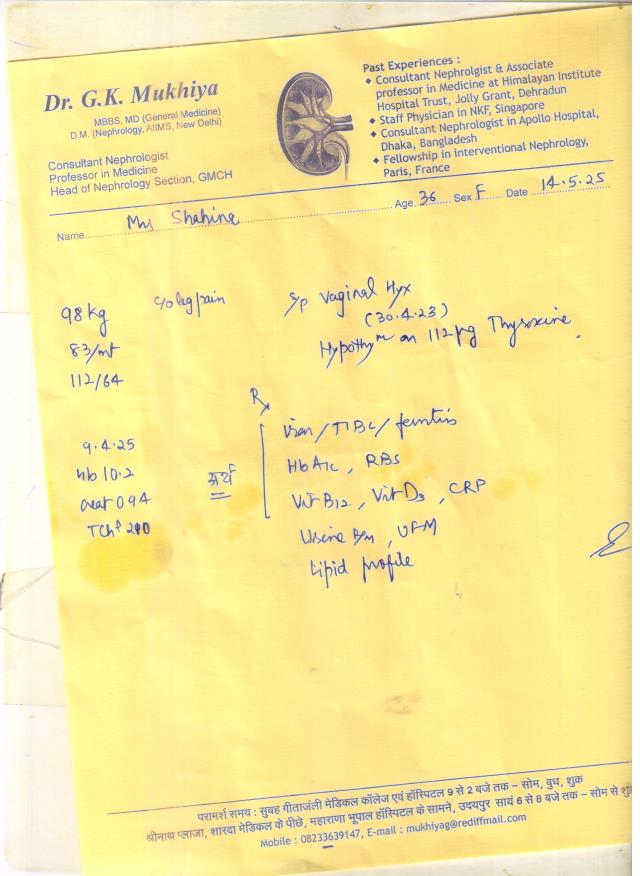 Dr. G.K. Mukhiya
MBBS, MD (General Medicine)
D.M. (Nephrology, AIIMS, New Delhi)
Consultant Nephrologist
Professor in Medicine
Head of Nephrology Section, GMCH
Past Experiences :
◆ Consultant Nephrolgist & Associate
professor in Medicine at Himalayan Institute
Hospital Trust, Jolly Grant, Dehradun
◆ Staff Physician in NKF, Singapore
◆ Consultant Nephrologist in Apollo Hospital,
Dhaka, Bangladesh
◆ Fellowship in interventional Nephrology,
Paris, France
Name Mrs Shahina Age 36 Sex F Date 14.5.25
98 kg
83/mt
112/64
c/o leg pain
S/p Vaginal Hyx
(30.4.23)
Hypothym on 112 µg Thyroxine.
9.4.25
Hb 10.2
creat 0.94
TChl 210
अर्थ
Rx
Iron/TIBC/ferritin
HbA1c, RBS
Vit B12, Vit D3, CRP
Urine, UFM
Lipid profile
परामर्श समय : सुबह गीताजंली मेडिकल कॉलेज एवं हॉस्पिटल 9 से 2 बजे तक – सोम, बुध, शुक्र
श्रीनाथ प्लाजा, शारदा मेडिकल के पीछे, महाराणा भूपाल हॉस्पिटल के सामने, उदयपुर सायं 6 से 8 बजे तक – सोम से
Mobile : 08233639147, E-mail : mukhiyag@rediffmail.com